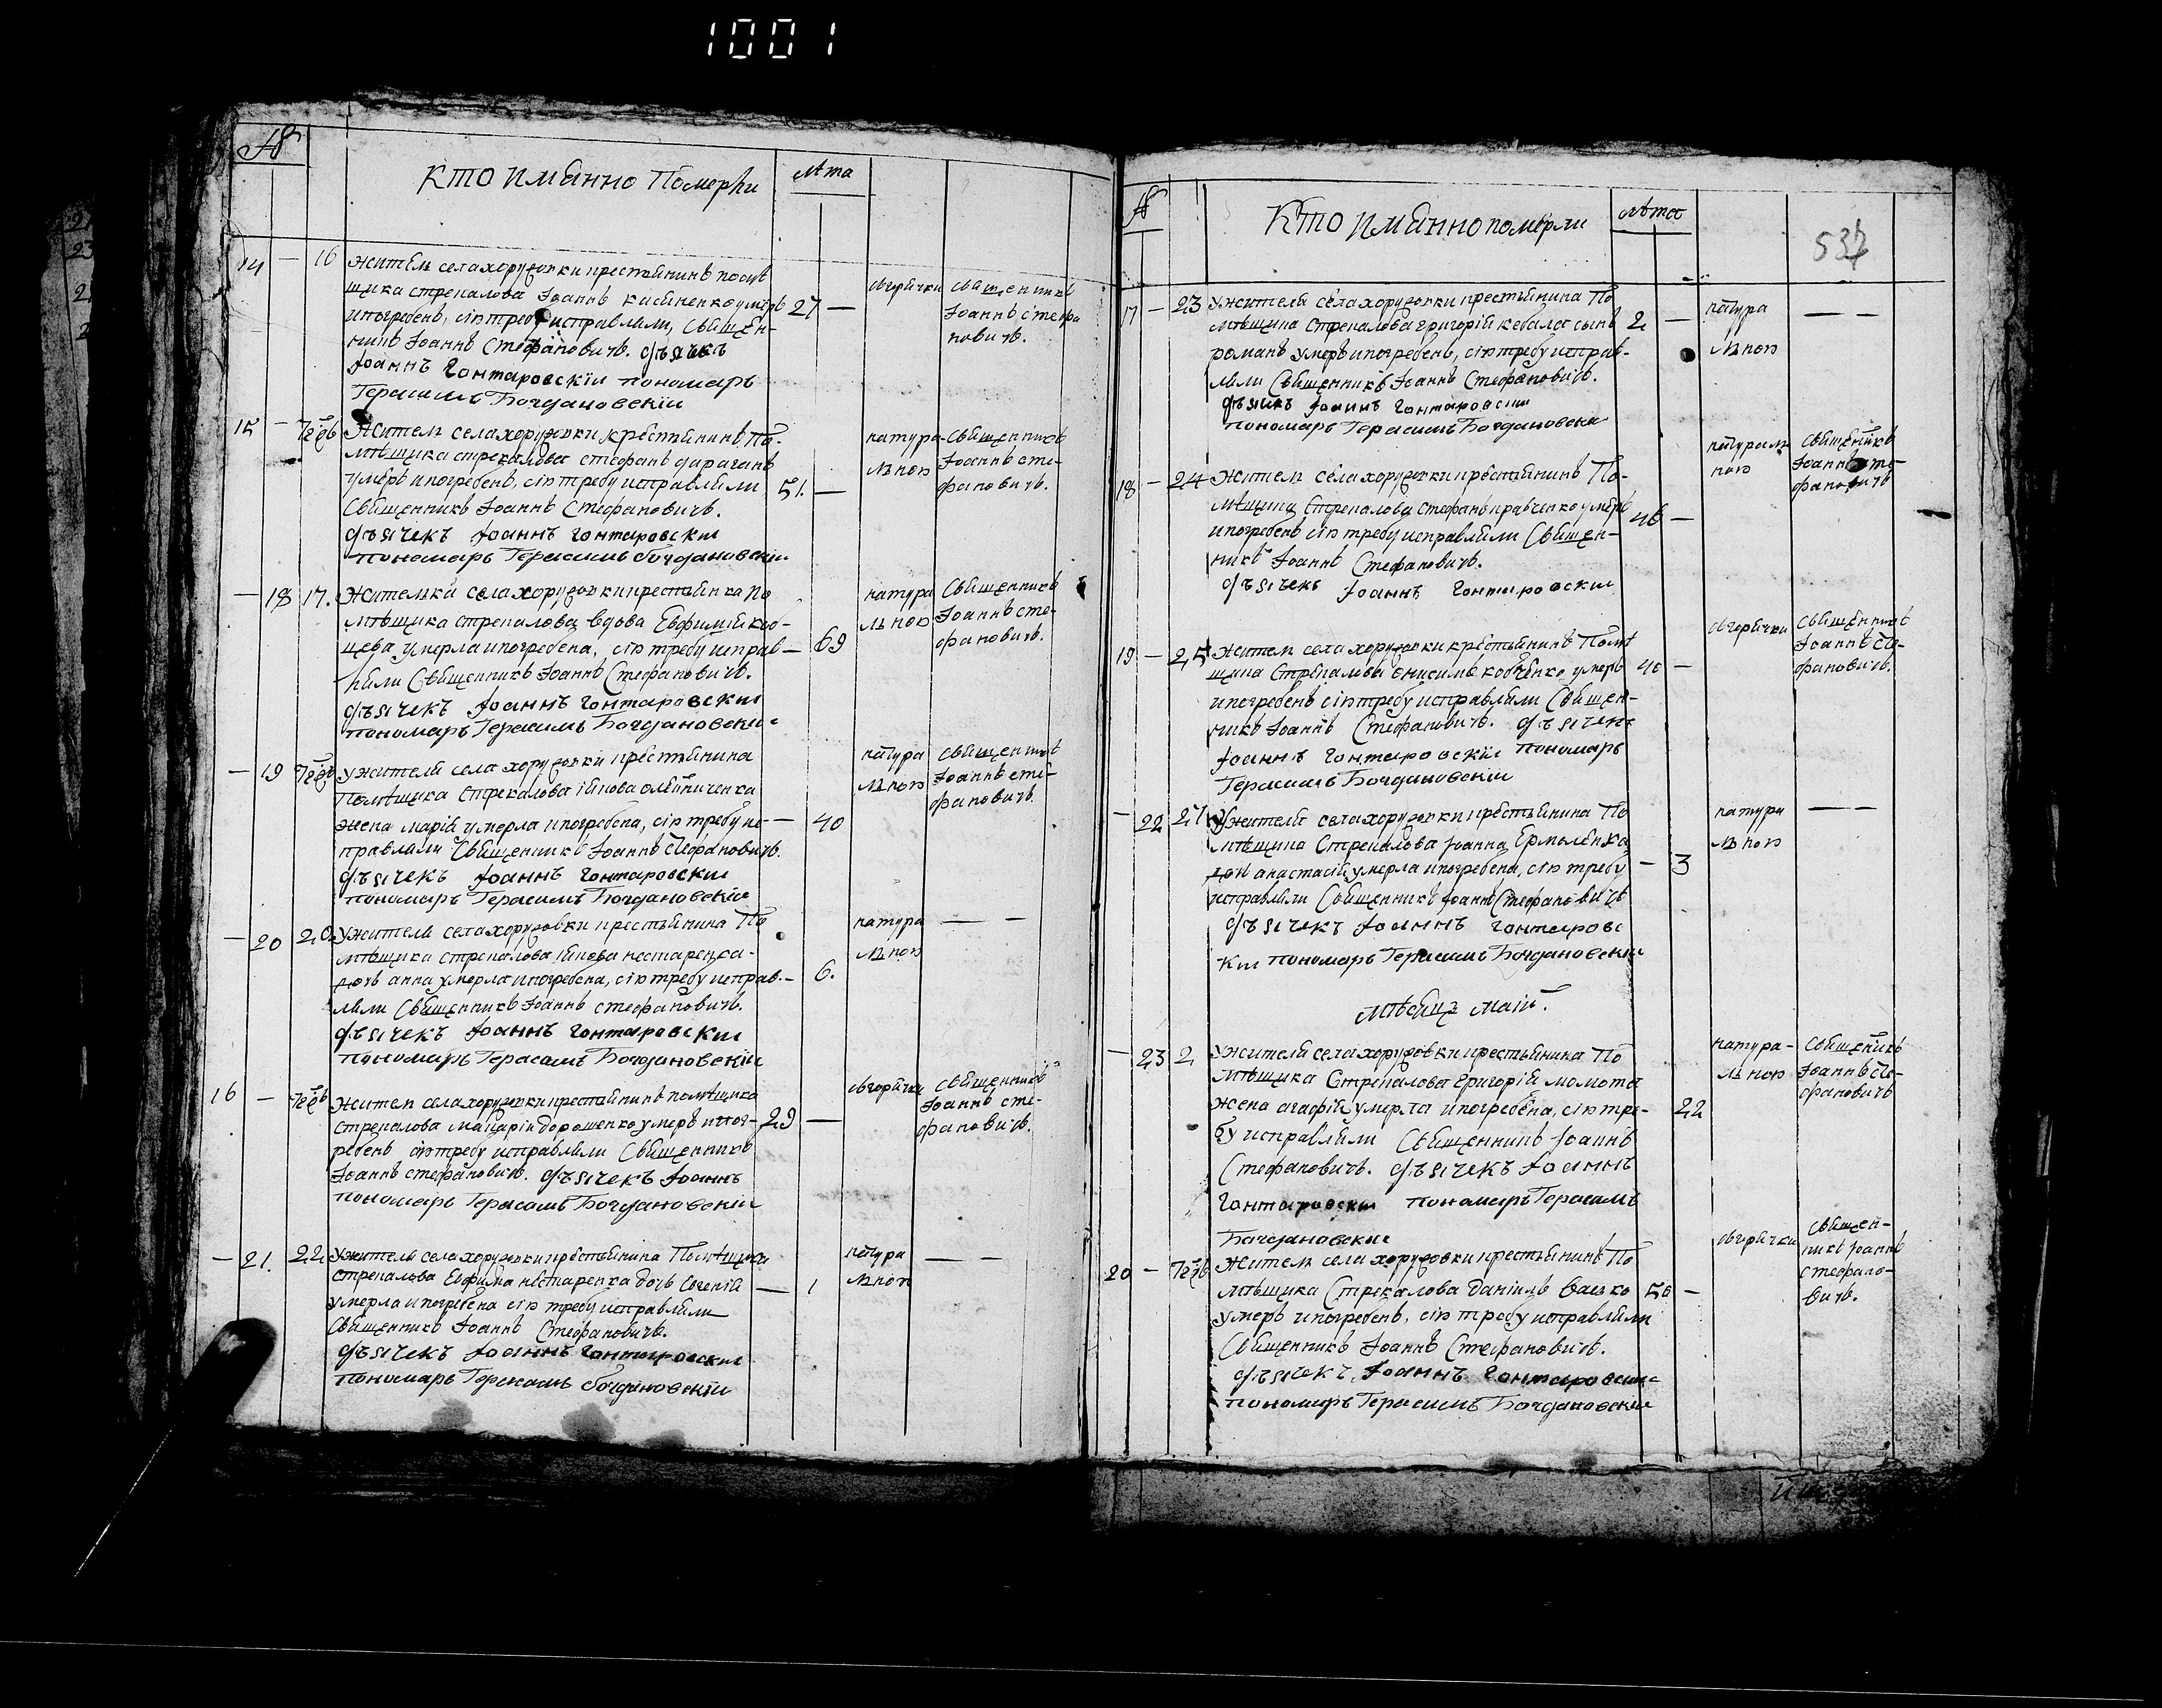 1001
№
Кто имянно Померли
лѣта
14 — 16 Житель села хоружовки крестянинъ помѣ
щика стрекалова Иоаннъ умеръ 27 —
и погребенъ, сію требу исправляли, Священ-
никъ Иоаннъ Стефановичъ. дьячекъ
Иоаннъ Гонтаровскїи пономаръ
Герасимъ Богдановскїи
отгорячки
Священникъ
Иоаннъ Стефа
новичъ.
15 — Житель села хоружовки крестянинъ По-
мѣщика стрекалова стефанъ
умеръ и погребенъ, сію требу исправляли 51. —
Священникъ Иоаннъ Стефановичъ.
дьячекъ Иоаннъ Гонтаровскїи
пономаръ Герасимъ Богдановскїи
натура
лною
Священникъ
Иоаннъ сте-
фановичъ.
— 18 17. Жителка села хоружовки крестянка По
мѣщика стрекалова вдова Евфимія
умерла и погребена, сію требу исправ — 69
ляли Священникъ Иоаннъ Стефановичъ.
дьячекъ Иоаннъ Гонтаровскїи
пономаръ Герасимъ Богдановскїи
натура
лною
Священникъ
Иоаннъ сте-
фановичъ.
— 19 Ужителя села хоружовки крестянина
Помѣщика Стрекалова іякова олѣйниченка
жена марія умерла и погребена, сію требу ис — 40
правляли Священникъ Иоаннъ Стефановичъ.
дьячекъ Иоаннъ Гонтаровскїи
пономаръ Герасимъ Богдановскїи
натура
лною
Священникъ
Иоаннъ сте-
фановичъ.
— 20 20 Ужителя села хоружовки крестянина По
мѣщика стрекалова іякова нестаренка
дочь анна умерла и погребена, сію требу исправ- — 6.
ляли Священникъ Иоаннъ стефановичъ.
дьячекъ Иоаннъ Гонтаровскїи
пономаръ Герасимъ Богдановскїи
натура
лною
— —
16 — Житель села хоружовки крестянинъ помѣщика
стрекалова макарій дорошенко умеръ и пог- 29 —
ребенъ сію требу исправляли Священникъ
Иоаннъ стефановичъ. дьячекъ Иоаннъ
пономаръ Герасимъ Богдановскїи
отгорячки
Священникъ
Иоаннъ сте-
фановичъ.
— 21. 22 Ужителя села хоружовки крестянина Помѣщика
стрекалова Евфима нестаренка дочь Евгенія — 1
умерла и погребена сію требу исправляли
Священникъ Иоаннъ Стефановичъ.
дьячекъ Иоаннъ Гонтаровскїи
пономаръ Герасимъ Богдановскїи
натура
лною
— —
№
Кто имянно померли
лѣта
537
17 — 23 Ужителя села хоружовки крестянина По
мѣщика Стрекалова григорія кебала сынъ 2 —
романъ умеръ и погребенъ, сію требу исправ-
ляли Священникъ Иоаннъ Стефановичъ.
дьячекъ Иоаннъ Гонтаровскїи
пономаръ Герасимъ Богдановскїи
натура
лною
— —
18 — 24 Житель села хоружовки крестянинъ По-
мѣщика Стрекалова Стефанъ кравченко умеръ 46 —
и погребенъ сію требу исправляли Священ-
никъ Иоаннъ Стефановичъ.
дьячекъ Иоаннъ Гонтаровскїи
натурал
ною
Священникъ
Иоаннъ сте-
фановичъ
19 — 25 Житель села хоружовки крестянинъ Помѣ
щика Стрекалова онисимъ умеръ 40 —
и погребенъ сію требу исправляли Священ-
никъ Иоаннъ Стефановичъ. дьячекъ
Иоаннъ Гонтаровскїи пономаръ
Герасимъ Богдановскїи
отгорячки
Священникъ
Иоаннъ Сте-
фановичъ.
— 22 27 Ужителя села хоружовки крестянина По
мѣщика Стрекалова Иоанна Ермоленка
дочь анастасія умерла и погребена, сію требу — 3
исправляли Священникъ Иоаннъ Стефановичъ
дьячекъ Иоаннъ Гонтаровс
кїи пономаръ Герасимъ Богдановскїи
натура
лною
— —
мѣсяцъ маій.
— 23 2 Ужителя села хоружовки крестянина По
мѣщика Стрекалова Григорія момота
жена агафія умерла и погребена, сію тре- — 22
бу исправляли Священникъ Иоаннъ
Стефановичъ. дьячекъ Иоаннъ
Гонтаровскїи пономаръ Герасимъ
Богдановскїи
натура-
лною
Священникъ
Иоаннъ Сте-
фановичъ
20 — Житель села хоружовки крестянинъ По
мѣщика Стрекалова Даніилъ 50 —
умеръ и погребенъ, сію требу исправляли
Священникъ Иоаннъ Стефановичъ.
дьячекъ, Иоаннъ Гонтаровскїи
пономаръ Герасимъ Богдановскїи
отгорячки
Священ-
никъ Иоаннъ
стефано-
вичъ.